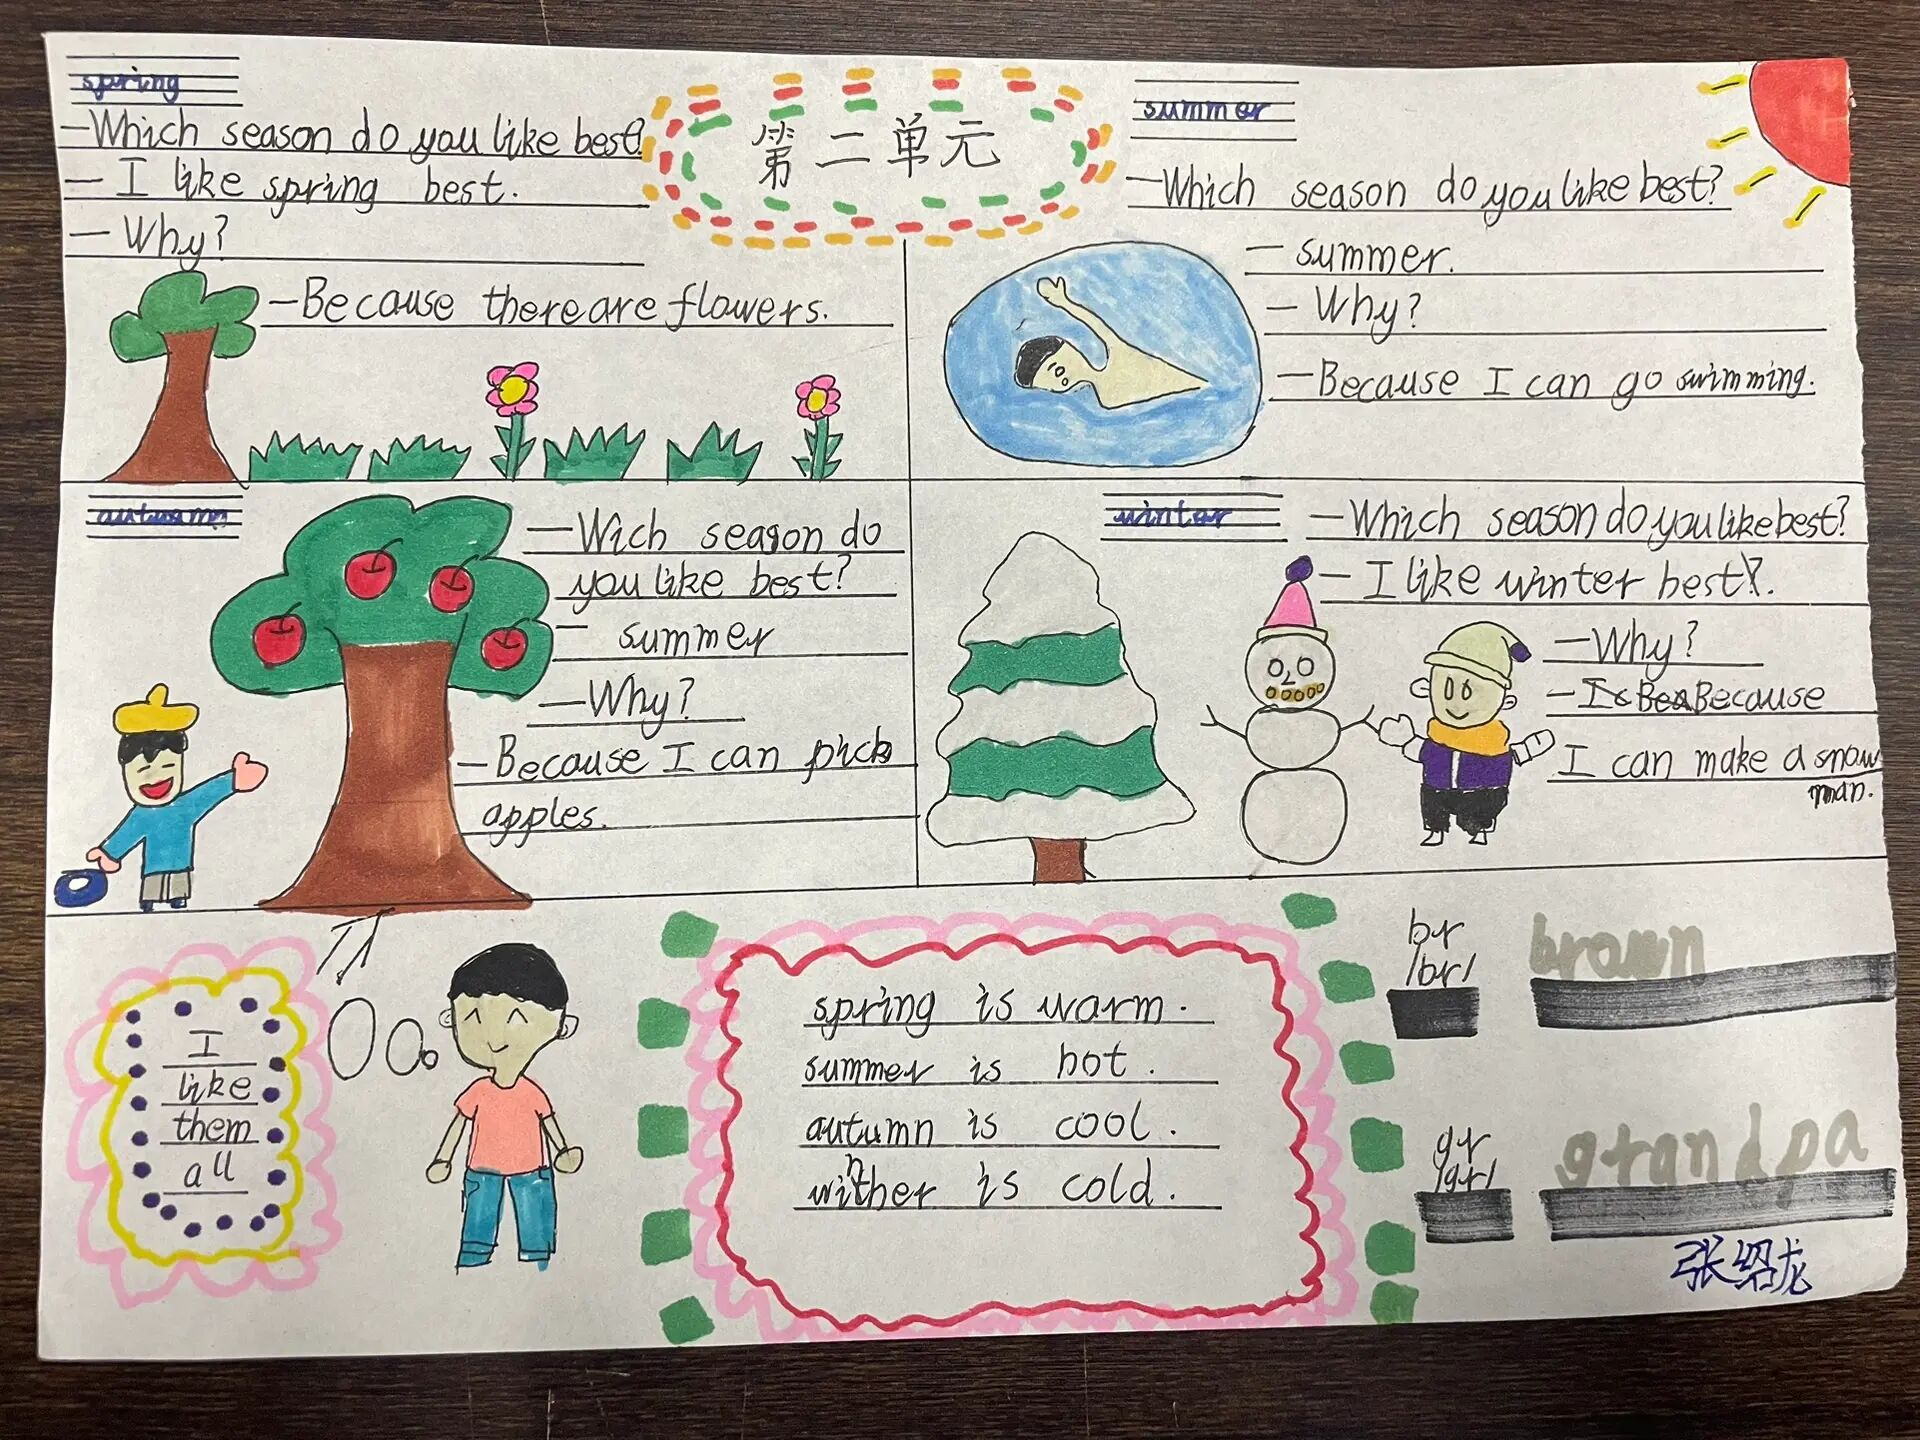 spring
—Which season do you like best?
— I like spring best.
— Why?
—Because there are flowers.
第二单元
summer
—Which season do you like best?
— summer.
— Why?
—Because I can go swimming.
autumn
—Wich season do
you like best?
— summer
—Why?
—Because I can pick
apples.
winter
—Which season do you like best?
— I like winter best.
—Why?
—Because
I can make a snow
man.
I
like
them
all
spring is warm.
summer is hot.
autumn is cool.
winther is cold.
br
/br/
brown
gr
/gr/
grandpa
张绍龙